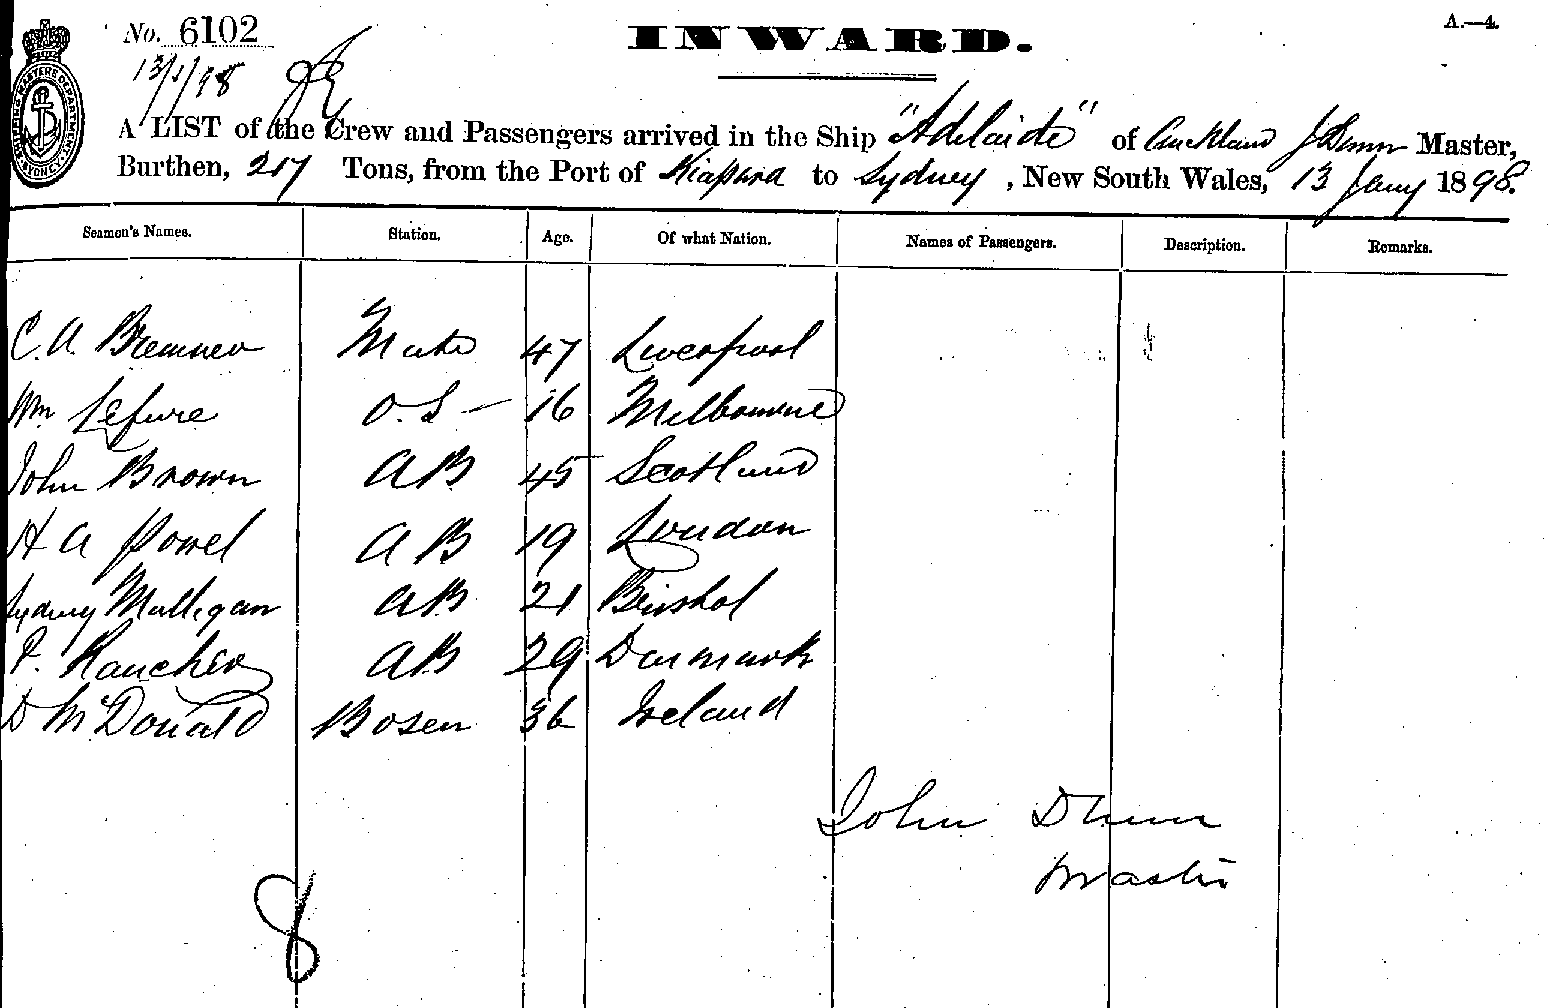 No. 6102
INWARD.
A.—4.
13/1/98
A LIST of the Crew and Passengers arrived in the Ship "Adelaide" of Auckland J Dunn Master,
Burthen, 217 Tons, from the Port of Kiapara to Sydney, New South Wales, 13 Jany 1898.
Seamen's Names. Station. Age. Of what Nation. Names of Passengers. Description. Remarks.
C. A. Bremner Mate 47 Liverpool
Wm Lefure O.S — 16 Melbourne
John Brown AB 45 Scotland
H A Powel AB 19 London
Sydney Mulligan AB 21 Bristol
Rancher AB 29 Denmark
D McDonald Bosen 36 Ireland
John Dunn
Master
8